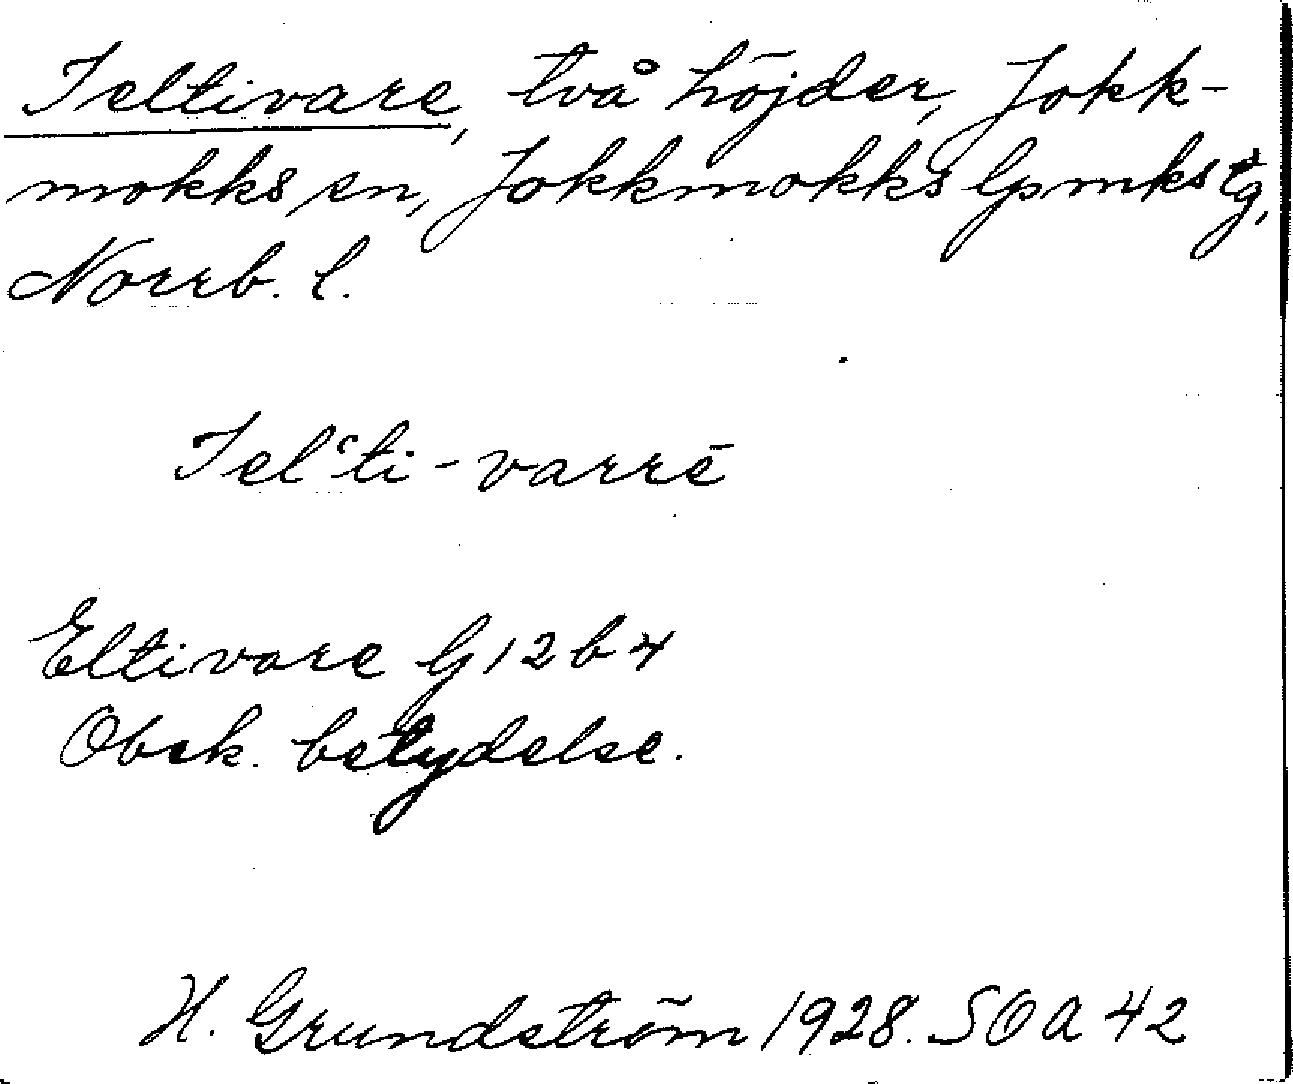 Jeltivare, två höjder, Jokk-
mokks sn, Jokkmokks lpmks tg,
Norrb. l.
Jelʿti-varrē
Eltivare G 12 b 4
Obek. betydelse.
H. Grundström 1928. SOA 42